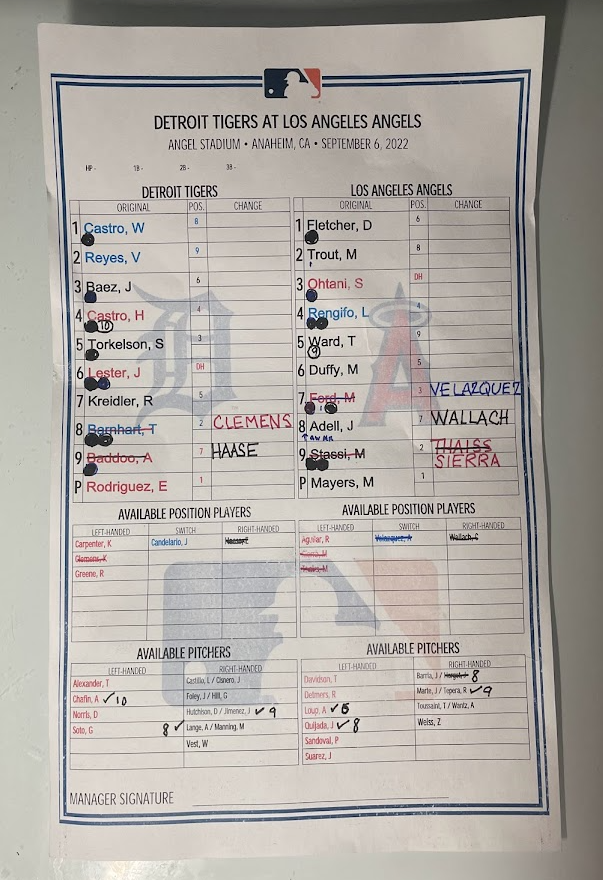 DETROIT TIGERS AT LOS ANGELES ANGELS
ANGEL STADIUM • ANAHEIM, CA • SEPTEMBER 6, 2022
HP - 1B - 2B - 3B -
DETROIT TIGERS
ORIGINAL POS. CHANGE
1 Castro, W 8
2 Reyes, V 9
3 Baez, J 6
4 Castro, H 4
10
5 Torkelson, S 3
6 Lester, J DH
7 Kreidler, R 5
8 Barnhart, T 2 CLEMENS
9 Baddoo, A 7 HAASE
P Rodriguez, E 1
LOS ANGELES ANGELS
ORIGINAL POS. CHANGE
1 Fletcher, D 6
2 Trout, M 8
3 Ohtani, S DH
4 Rengifo, L 4
5 Ward, T 9
9
6 Duffy, M
7 Ford, M 3 VELAZQUEZ
8 Adell, J 7 WALLACH
9 Stassi, M 2 THAISS
SIERRA
P Mayers, M 1
AVAILABLE POSITION PLAYERS
LEFT-HANDED SWITCH RIGHT-HANDED
Carpenter, K Candelario, J Haase, E
Clemens, K
Greene, R
AVAILABLE POSITION PLAYERS
LEFT-HANDED SWITCH RIGHT-HANDED
Aguilar, R Velazquez, A Wallach, C
Sierra, M
Thaiss, M
AVAILABLE PITCHERS
LEFT-HANDED RIGHT-HANDED
Alexander, T Castillo, L / Cisnero, J
Chafin, A ✓10 Foley, J / Hill, G
Norris, D Hutchison, D / Jimenez, J ✓ 9
Soto, G 8 ✓ Lange, A / Manning, M
Vest, W
AVAILABLE PITCHERS
LEFT-HANDED RIGHT-HANDED
Davidson, T Barria, J / 8
Detmers, R Marte, J / Tepera, R ✓9
Loup, A ✓ Toussaint, T / Wantz, A
Quijada, J ✓ 8 Weiss, Z
Sandoval, P
Suarez, J
MANAGER SIGNATURE